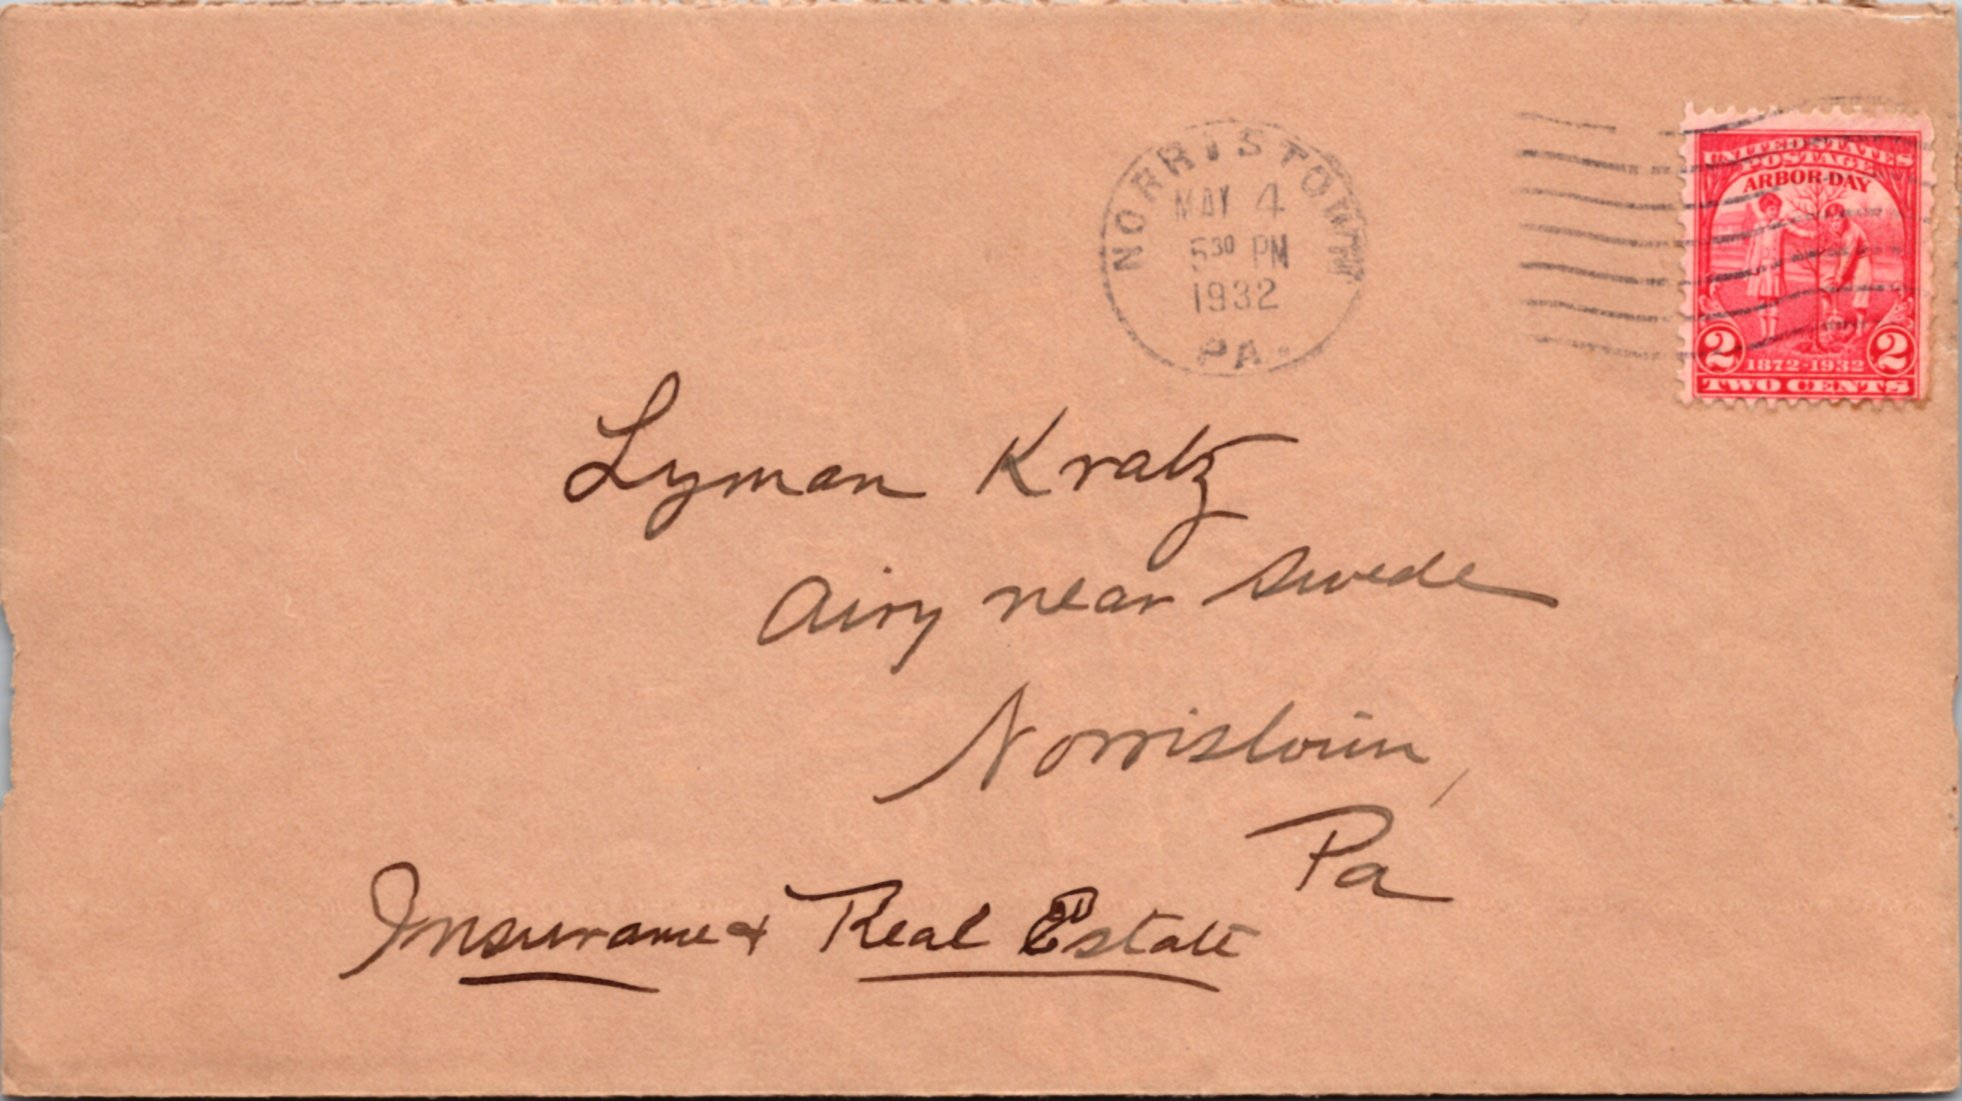 NORRISTOWN
MAY 4
5 30 PM
1932
PA.
UNITED STATES
POSTAGE
ARBOR DAY
2 2
1872-1932
TWO CENTS
Lyman Kratz
Airy near Swede
Norristown,
Pa
Insurance & Real Estate